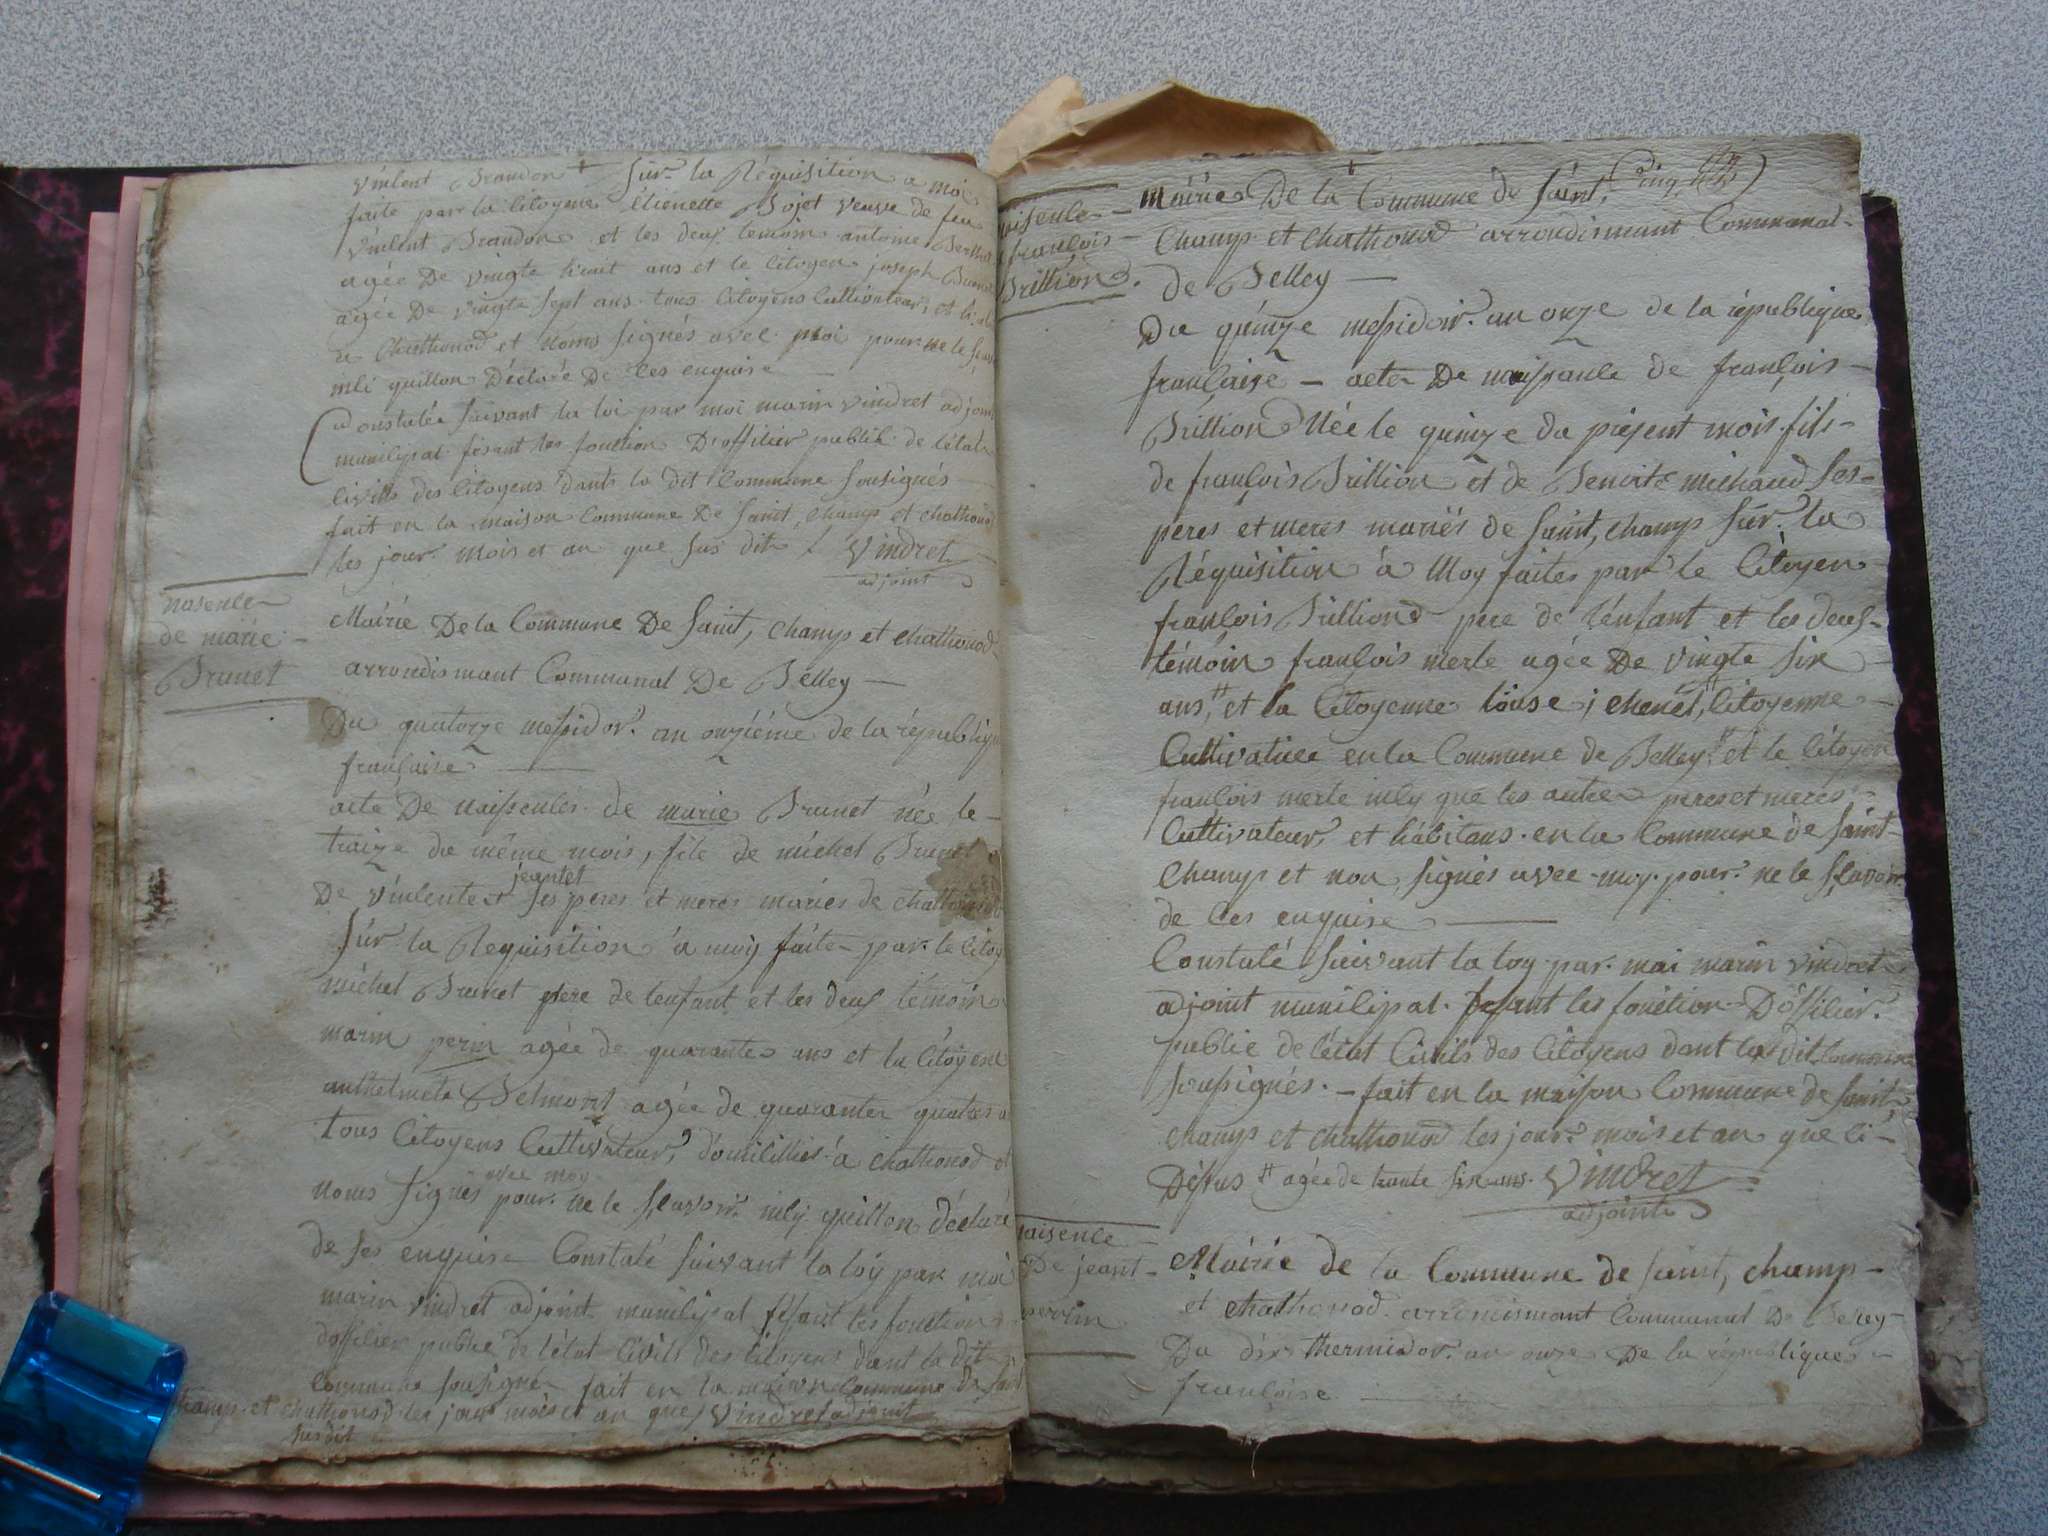 vinlent Brandon sur la Réquisition a moi
faite par la Citoyene étienette Bojet veuve de feu
vinlent Brandon et les deus temoin antoine
agée De vingte huit ans et le Citoyen joseph
agée De vingte sept ans tous Citoyens Cultivateurs et
a Chathonod et noms signés avec moi pour ne le
inli quillon Déclaré De Ces enquise
Constalée suivant la loi par moi marin vindret adjoint
munilipal fesant les fonction D'offilier publik de létat
livills des Citoyens dants la dit Commune sousignés
fait en la maison Commune De saint, champ et chathonod
les jour mois et an que sus dit Vindret
adjoint
nasenle
de marie
Brunet
Mairie De la Commune De saint, champ et chathonod
arrondismant Communal De Belley
Du quatorze messidor an onziéme de la républiqu
franlaise
acte De naissenles de marie Brunet née le
traize du même mois, file de michel Brunet
jeantet
De vinlente et ses peres et meres mariés de chathonod
sur la Requisition a moy faite par le Citoy
michel Brunet pere de lenfant et les deus temoin
marin perin agée de quarante ans et la Citoyene
anthelmete Belmont agée de quarante quatre a
tous Citoyens Cultivateur, domiliillies a chathonod et
avec moy
noms signés pour ne le sçavoir inly quillon déclaré
de ses enquise Constalé suivant la loy par moi
marin vindret adjoint munilipal fesant les fonction
doffilier publie de létat Civils des Citoyens dant la dit
Commune sousigné fait en la maison Commune De sain
champ et chathonod les jour mois et an que Vindret adjoint
sus dit
naisenle
françois
Brillion
Mairie De la Commune de saint,
Champ et Chathonod arrondismant Communal
de Belley
Du quinze messidor an onze de la république
franlaise acte De naissanle de françois
Brillion Née le quinze du présent mois fils
de françois Brillion et de Benoite michaud ses
peres et meres mariés de saint, champ sur la
Réquisition à Moy faites par le Citoyen
françois Brillion pere de lenfant et les deus
témoin françois merle agée De vingte six
ans, et la Citoyenne louse j chenet, Citoyenne
Cultivatrice en la Commune de Belley et le Citoyen
françois merle inly que les autre peres et meres
Cultivateur, et habitans en la Commune de saint
Champ et non signés avec moy pour ne le sçavoir
de Ces enquise
Constalé suivant la loy par moi marin vindret
adjoint munilipal fesant les fonction D'offilier
publie de létat Civils des Citoyens dant la dit Commune
sousignés. fait en la maison Commune de saint,
champ et chathonod les jour mois et an que Ci
Déssus agée de trante six ans. Vindret
adjoint
naisence
De jeant
perrin
Mairie de la Commune de saint, champ
et chathonod arrondismant Communal De Belley
Du dix thermidor an onze De la république
françoise